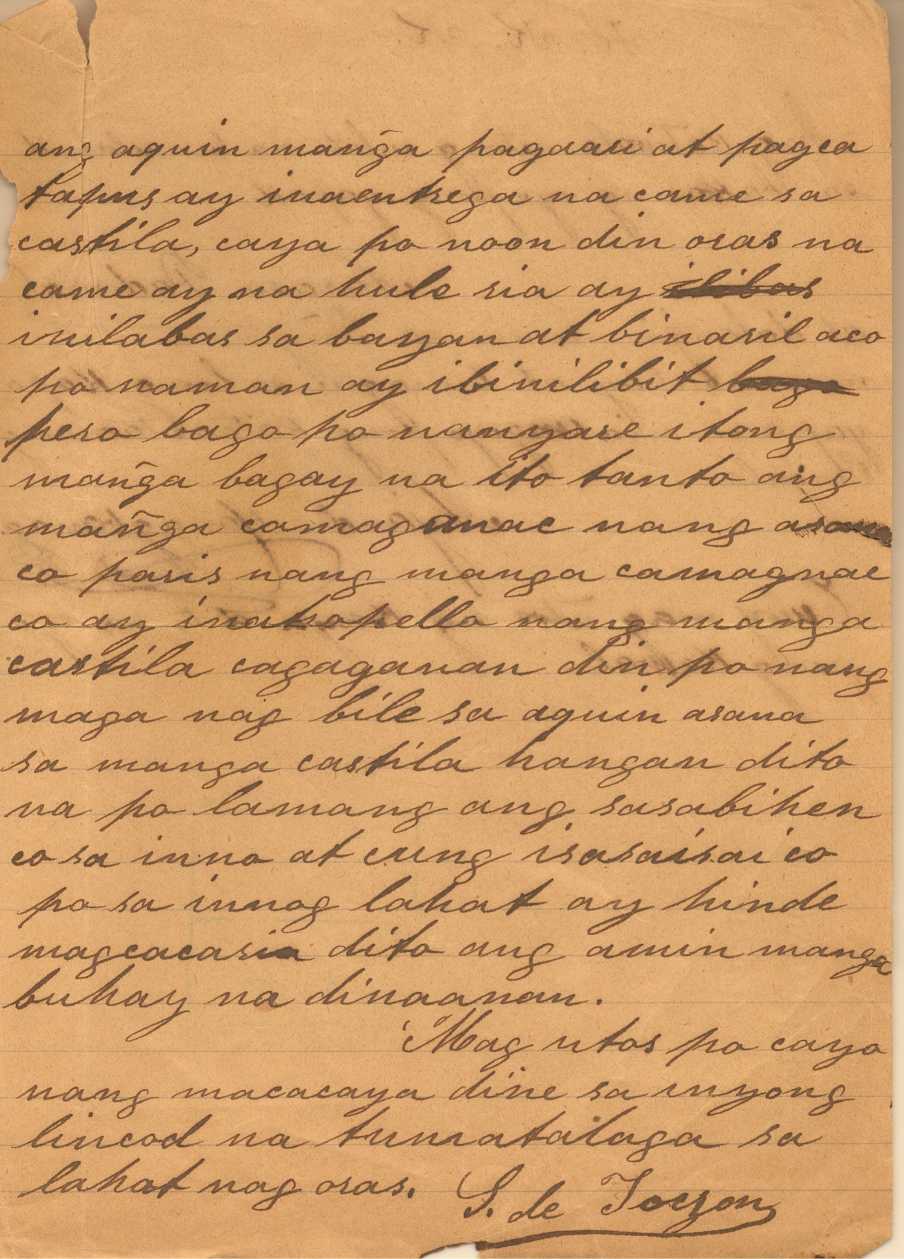 ang aquin mañga pagaari at pagca
tapus ay inaentrega na came sa
castila, caya po noon din oras na
came ay na hule sia ay ilibas
inilabas sa bayan at binaril aco
po naman ay ibinilibit bago
pero bago po nanyare itong
mañga bagay na ito tanto ang
mañga camaganac nang asaua
co paris nang manga camagnac
co ay inatropello nang manga
castila cagagauan din po nang
maga nag bile sa aquin asaua
sa manga castila hangan dito
na po lamang ang sasabihen
co sa inno at cung isasaisai co
po sa innog lahat ay hinde
magcacasia dito ang amin manga
buhay na dinaanan.
Mag utos po cayo
nang macacaya dine sa inyong
lincod na tumatalaga sa
lahat nag oras. S. de Tocson